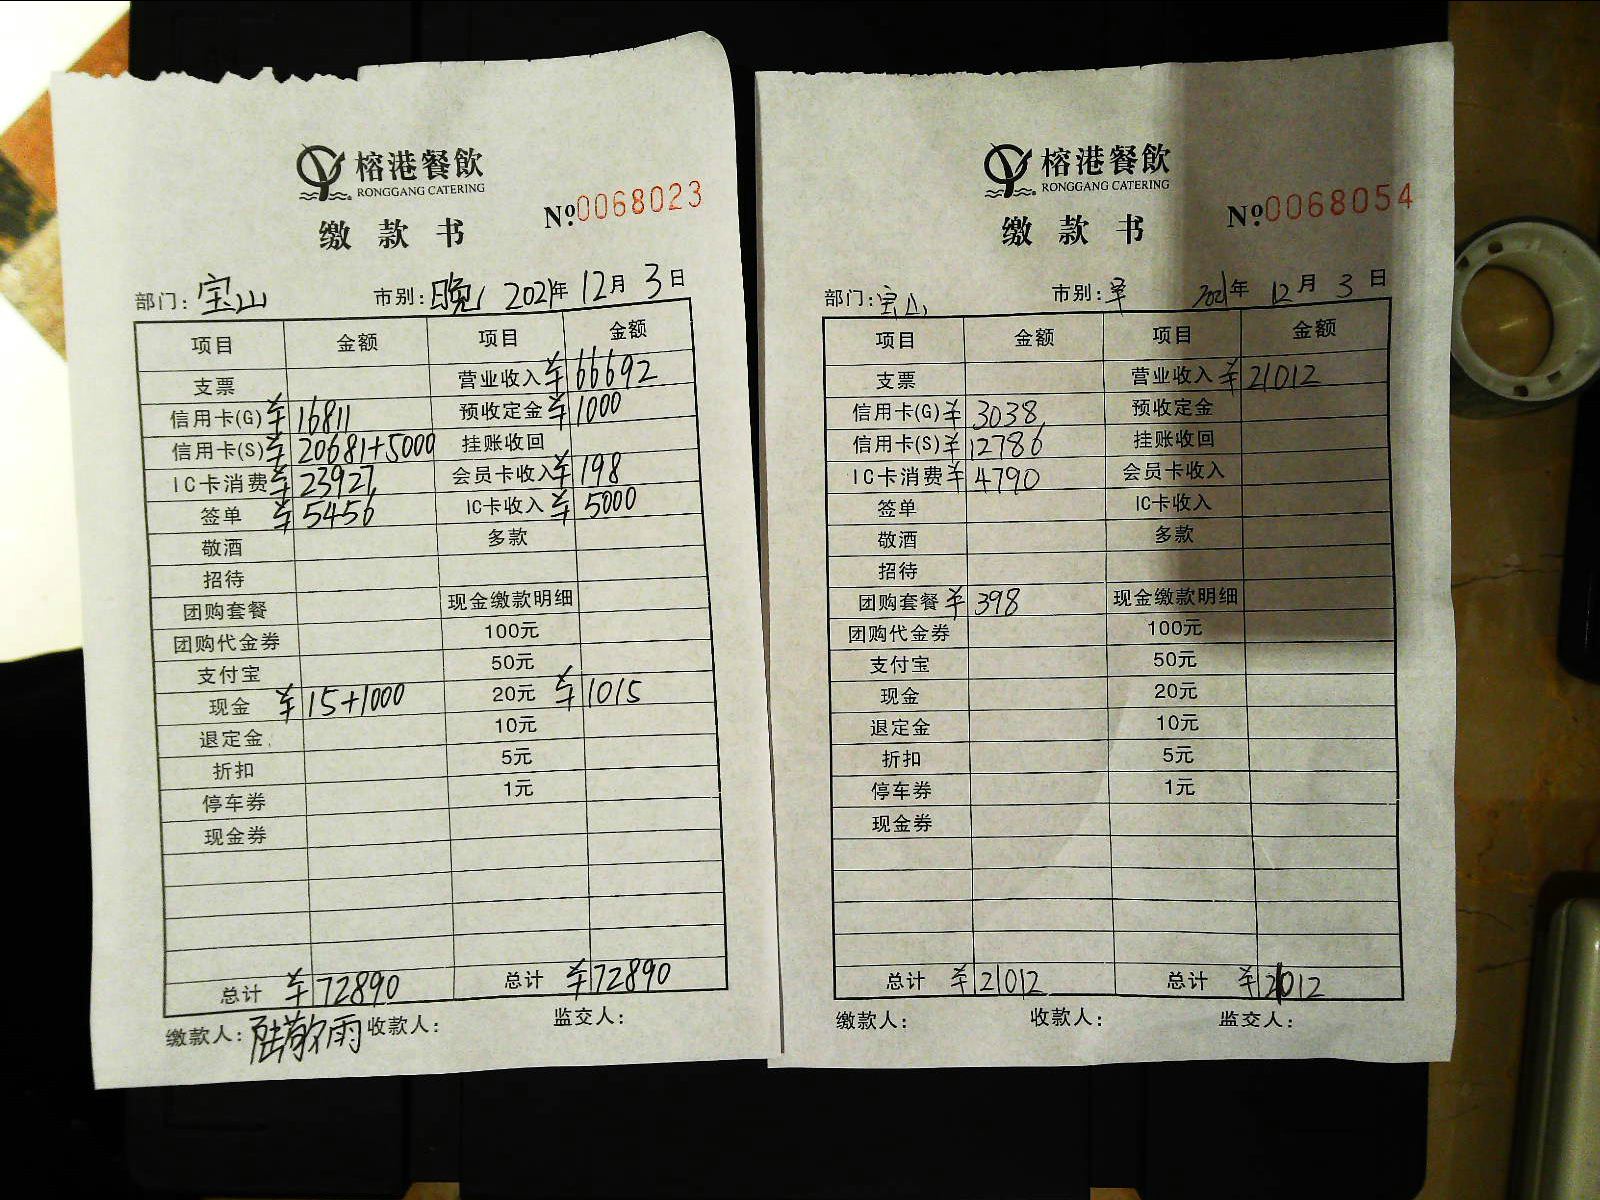 榕港餐飲
RONGGANG CATERING
缴款书 №0068023
部门：宝山 市别：晚 2021年12月3日
项目 金额 项目 金额
支票 营业收入 ¥66692
信用卡(G) ¥16811 预收定金 ¥1000
信用卡(S) ¥20681+5000 挂账收回
IC卡消费 ¥23927 会员卡收入 ¥198
签单 ¥5456 IC卡收入 ¥5000
敬酒 多款
招待
团购套餐 现金缴款明细
团购代金券 100元
支付宝 50元
现金 ¥15+1000 20元 ¥1015
退定金 10元
折扣 5元
停车券 1元
现金券
总计 ¥72890 总计 ¥72890
缴款人：陆敬雨 收款人： 监交人：
榕港餐飲
RONGGANG CATERING
缴款书 №0068054
部门：宝山 市别：早 2021年12月3日
项目 金额 项目 金额
支票 营业收入 ¥21012
信用卡(G) ¥3038 预收定金
信用卡(S) ¥12786 挂账收回
IC卡消费 ¥4790 会员卡收入
签单 IC卡收入
敬酒 多款
招待
团购套餐 ¥398 现金缴款明细
团购代金券 100元
支付宝 50元
现金 20元
退定金 10元
折扣 5元
停车券 1元
现金券
总计 ¥21012 总计 ¥21012
缴款人： 收款人： 监交人：